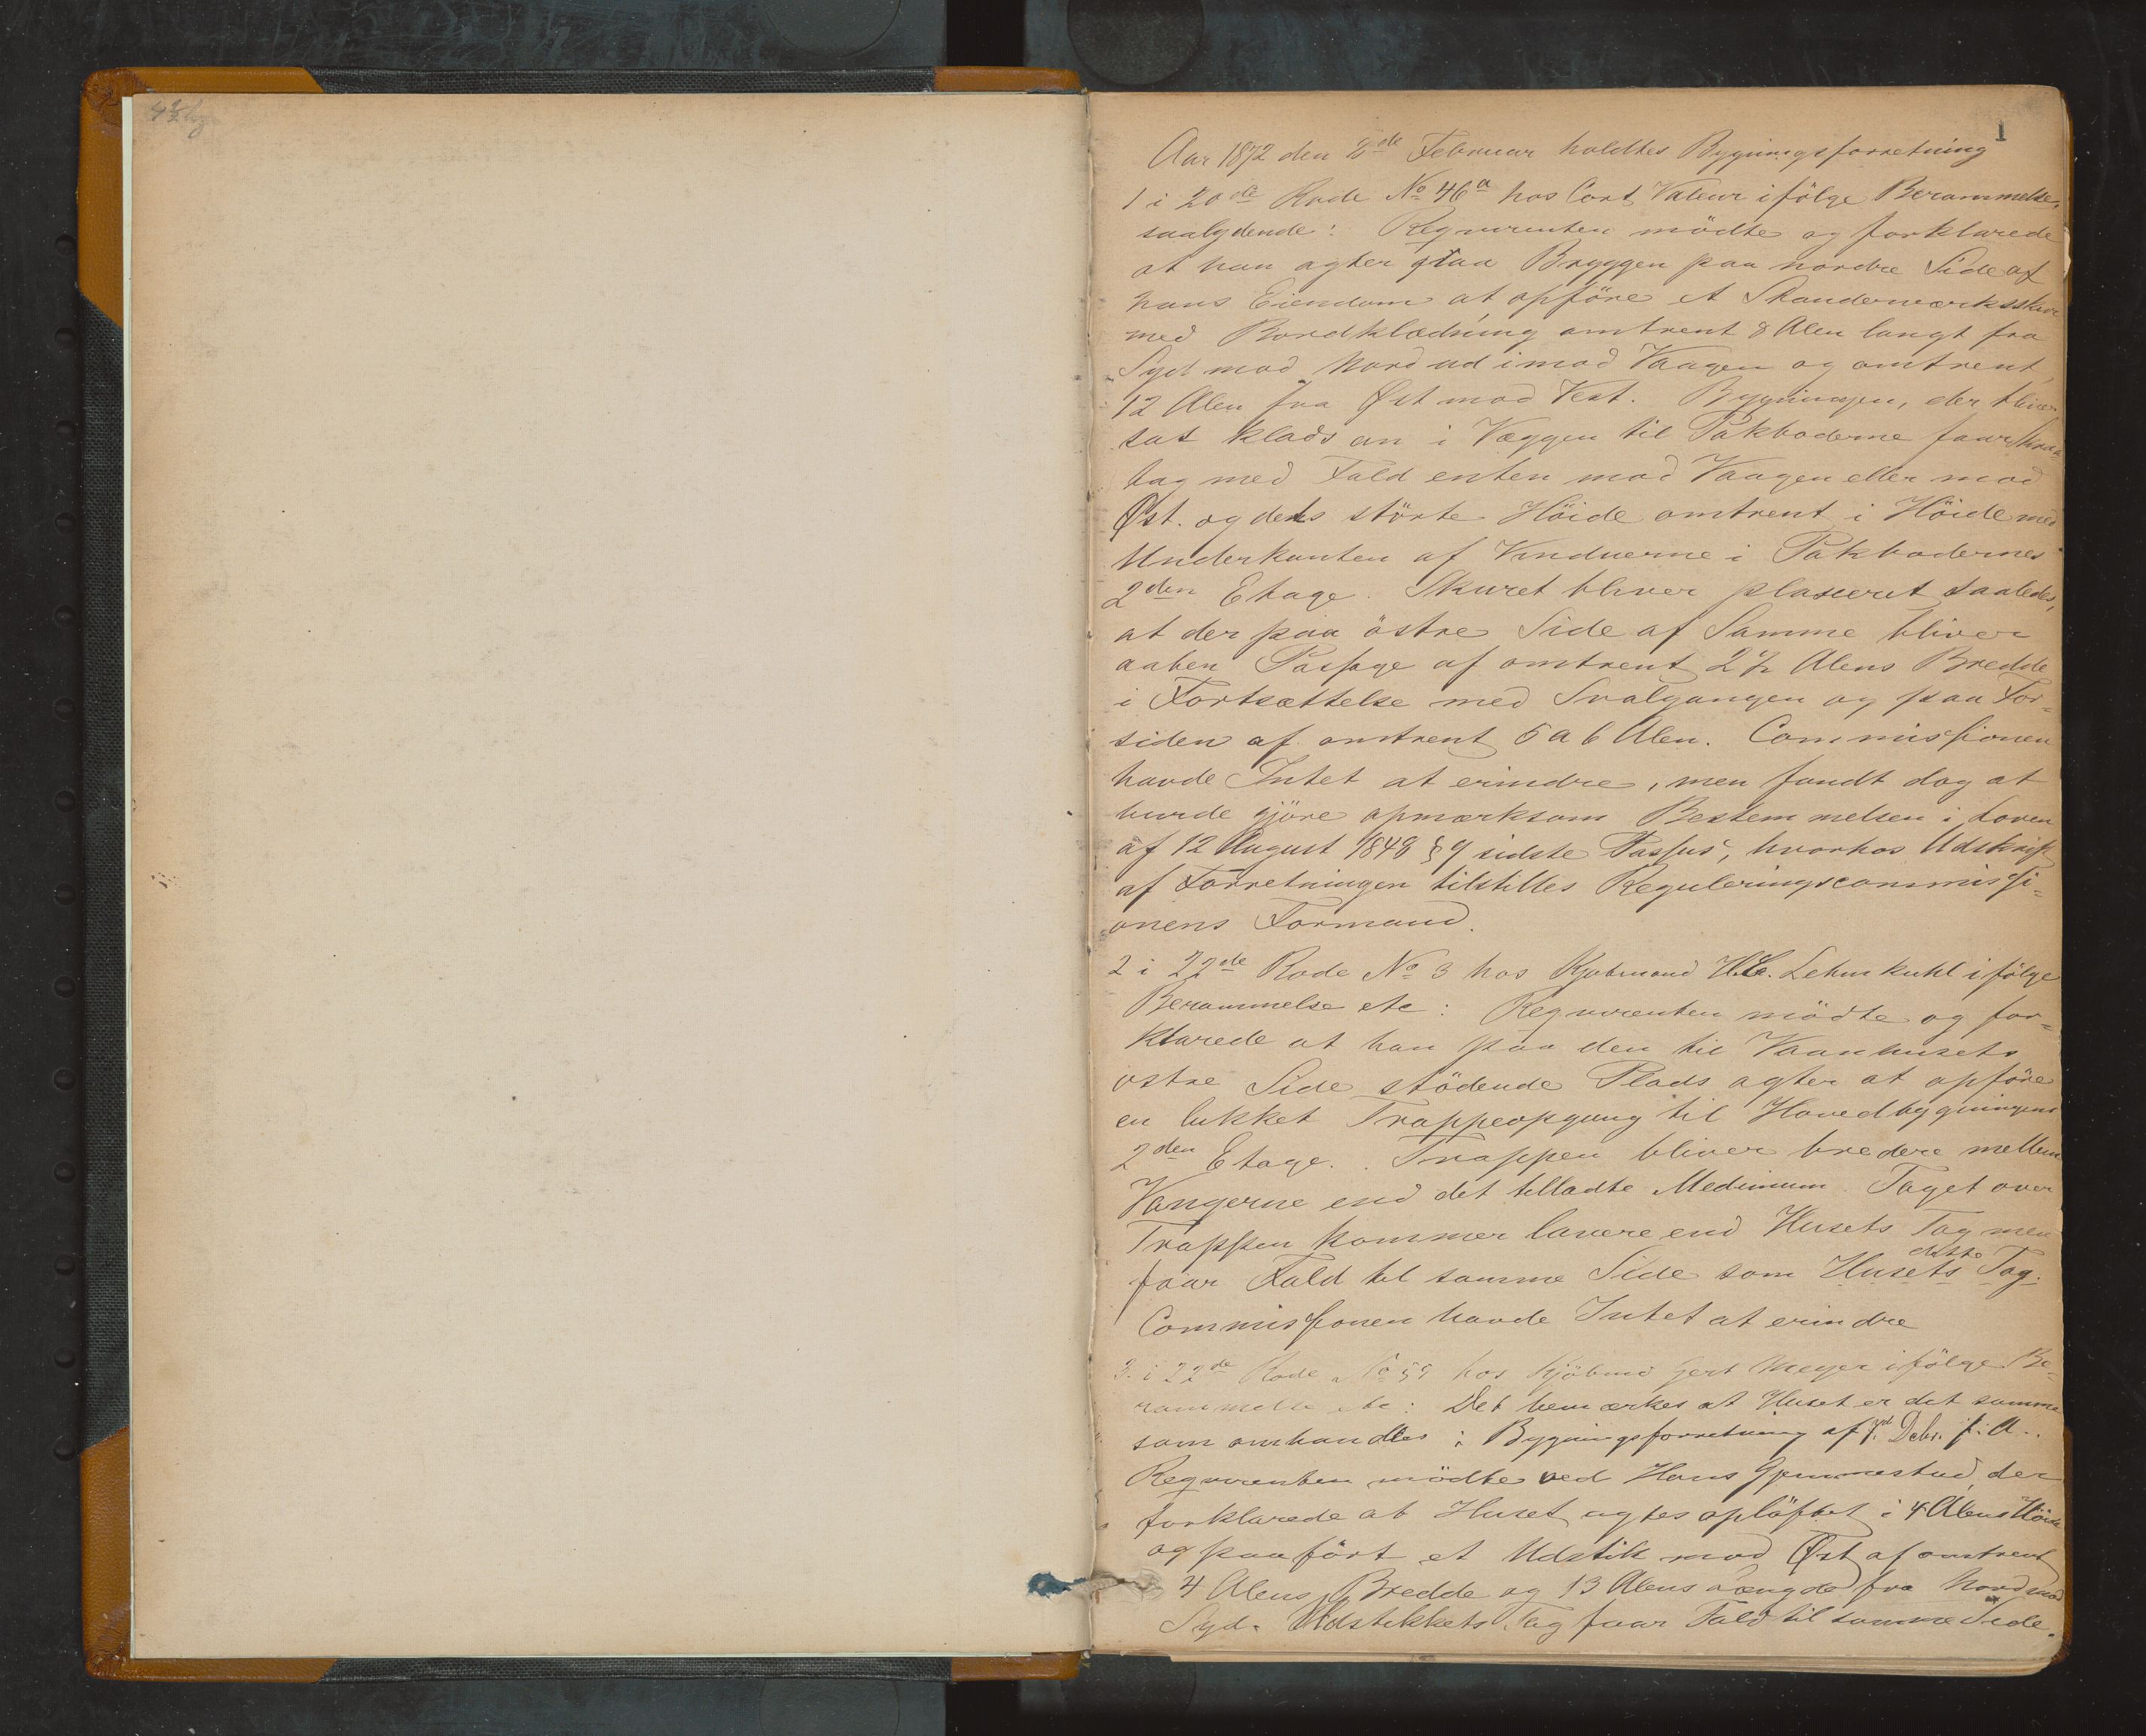 1
Aar 1872 den 2de Februar holdtes Bygningsforretning
1 i 20de Rode No 46a hos Cort Valeur ifölge Berammelse,
saalydende: Reqvirenten mödte og forklarede
at han agter paa Bryggen paa nordre Side af
hans Eiendom at opföre et Standerværksskur
med Bordklædning omtrent 8 Alen langt fra
Syd mod Nord ud imod Vaagen og omtrent
12 Alen fra Øst mod Vest. Bygningen, der bliver
sat klads an i Væggen til Pakboderne faar Skraa
tag med Fald enten mod Vaagen eller mod
Øst. og dets störste Höide omtrent i Höide med
Underkanten af Vinduerne i Pakbodernes
2den Etage. Skuret bliver plaseret saaledes,
at der paa östre Side af Samme bliver
aaben Passage af omtrent 2½ Alens Bredde
i Fortsættelse med Svalgangen og paa For-
siden af omtrent 5 a 6 Alen. Commissionen
havde Intet at erindre, men fandt dog at
burde gjöre opmærksom Bestemmelsen i Loven
af 12 August 1848 § 9 sidste Passus, hvorhos Udskrift
af Forretningen tilstilles Reguleringscommissi-
onens Formand.
2 i 22de Rode No 3 hos Kjobmand Lehmkuhl ifölge
Berammelse etc: Reqvirenten mödte og for-
klarede at han paa den til Vaanhusets
östre Side stödende Plads agter at opföre
en lukket Trappeopgang til Hovedbygningens
2den Etage. Trappen bliver bredere mellem
Vangerne end det tilladte Medimum. Taget over
Trappen kommer lavere end Husets Tag men
faar Fald til samme Side som Husets dette Tag.
Commissionen havde Intet at erindre
3. i 22de Rode No 59 hos Kjöbmd Gert Meyer ifölge Be-
rammelse etc: Det bemærkes at Huset er det samme
som omhandles i Bygningsforretning af Debr. f. A..
Reqvirenten mödte ved Hans Gjemmestad der
forklarede at Huset agtes oplöftet i 4 Alens Höide
og paafört et Udstik mod Øst af omtrent
4 Alens Bredde og 13 Alens Længde fra Nord mod
Syd. Udstikkets Tag faar Fald til samme Side.